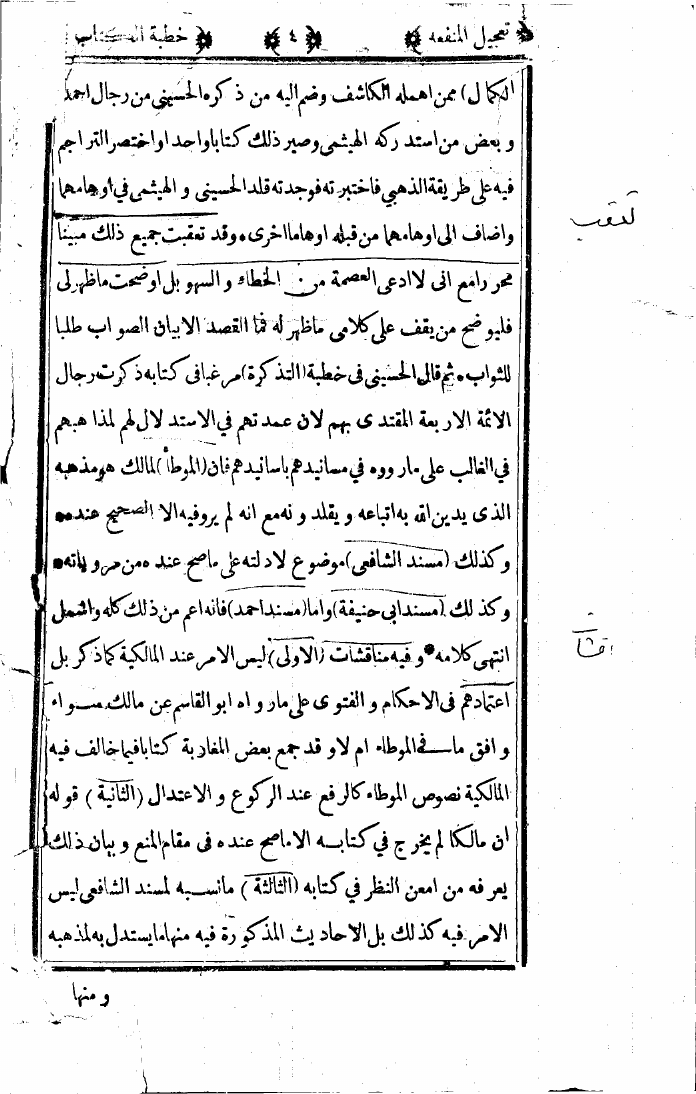 تعجيل المنفعه
﴿٤﴾
خطبة الكتاب
الكمال) ممن اهمله الكاشف وضم اليه من ذكره الحسينى من رجال احمد
وبعض من استدركه الهيثمى وصير ذلك كتابا واحدا واختصر التراجم
فيه على طريقة الذهبي فاختبرته فوجدته قلد الحسينى و الهيثمى في اوهامهما
واضاف الى اوهامهما من قبله اوهاما اخرى • وقد تعقبت جميع ذلك مبينا
محررا مع انى لا ادعى العصمة من الخطاء و السهو بل اوضحت ما ظهر لى
فليوضح من يقف على كلامى ما ظهر له فما القصد الا بيان الصواب طلبا
للثواب • ثم قال الحسينى فى خطبة (التذكرة) مرغبا فى كتابه ذكرت رجال
الائمة الاربعة المقتدى بهم لان عمدتهم في الاستدلال لهم لمذاهبهم
في الغالب على ما رووه في مسانيدهم باسانيدهم فان (الموطأ) لمالك هو مذهبه
الذى يدين الله به اتباعه و يقلدونه مع انه لم يرو فيه الا الصحيح عنده •
وكذلك (مسند الشافعى) موضوع لادلته على ما صح عنده من مروياته •
وكذلك (مسند ابى حنيفة) واما (مسند احمد) فانه اعم من ذلك كله واشمل
انتهى كلامه • وفيه مناقشات (الاولى) ليس الامر عند المالكية كما ذكر بل
اعتمادهم فى الاحكام و الفتوى على ما رواه ابو القاسم عن مالك سواء
وافق ما فى الموطاء ام لا وقد جمع بعض المغاربة كتابا فيما خالف فيه
المالكية نصوص الموطاء كالرفع عند الركوع و الاعتدال (الثانية) قوله
ان مالكا لم يخرج في كتابه الا ما صح عنده فى مقام المنع و بيان ذلك
يعرفه من امعن النظر في كتابه (الثالثة) ما نسبه لمسند الشافعى ليس
الامر فيه كذلك بل الاحاديث المذكورة فيه منها ما يستدل به لمذهبه
ومنها
تعقب